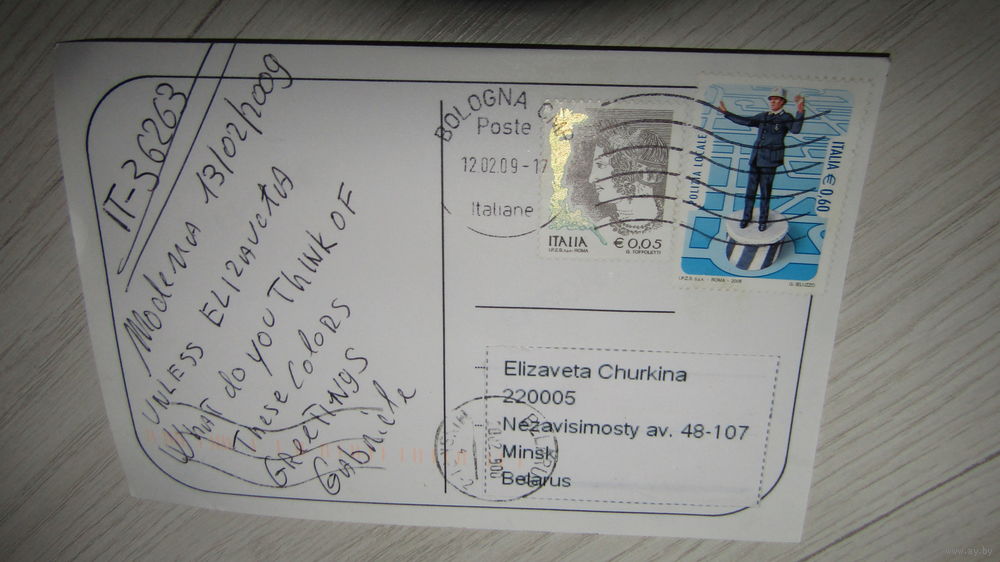 IT-36263
Modena 13/02/2009
UNLESS ELIZAVETA
What do YOU THINK OF
These COLORS
GREETINGS
GABRIELE
BOLOGNA
Poste
12.02.09-17
Italiane
ITALIA
€0,05
I.P.Z.S. S.p.A. ROMA
G. TOFFOLETTI
POLIZIA LOCALE
ITALIA €0,60
I.P.Z.S. S.p.A. - ROMA - 2008
G. BELUZZO
Elizaveta Churkina
220005
Nezavisimosty av. 48-107
Minsk
Belarus
www.ay.by